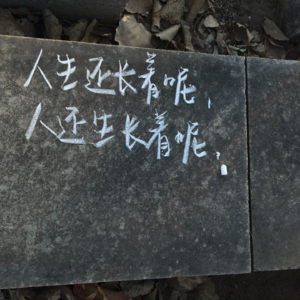 人生还长着呢，
人还生长着呢。